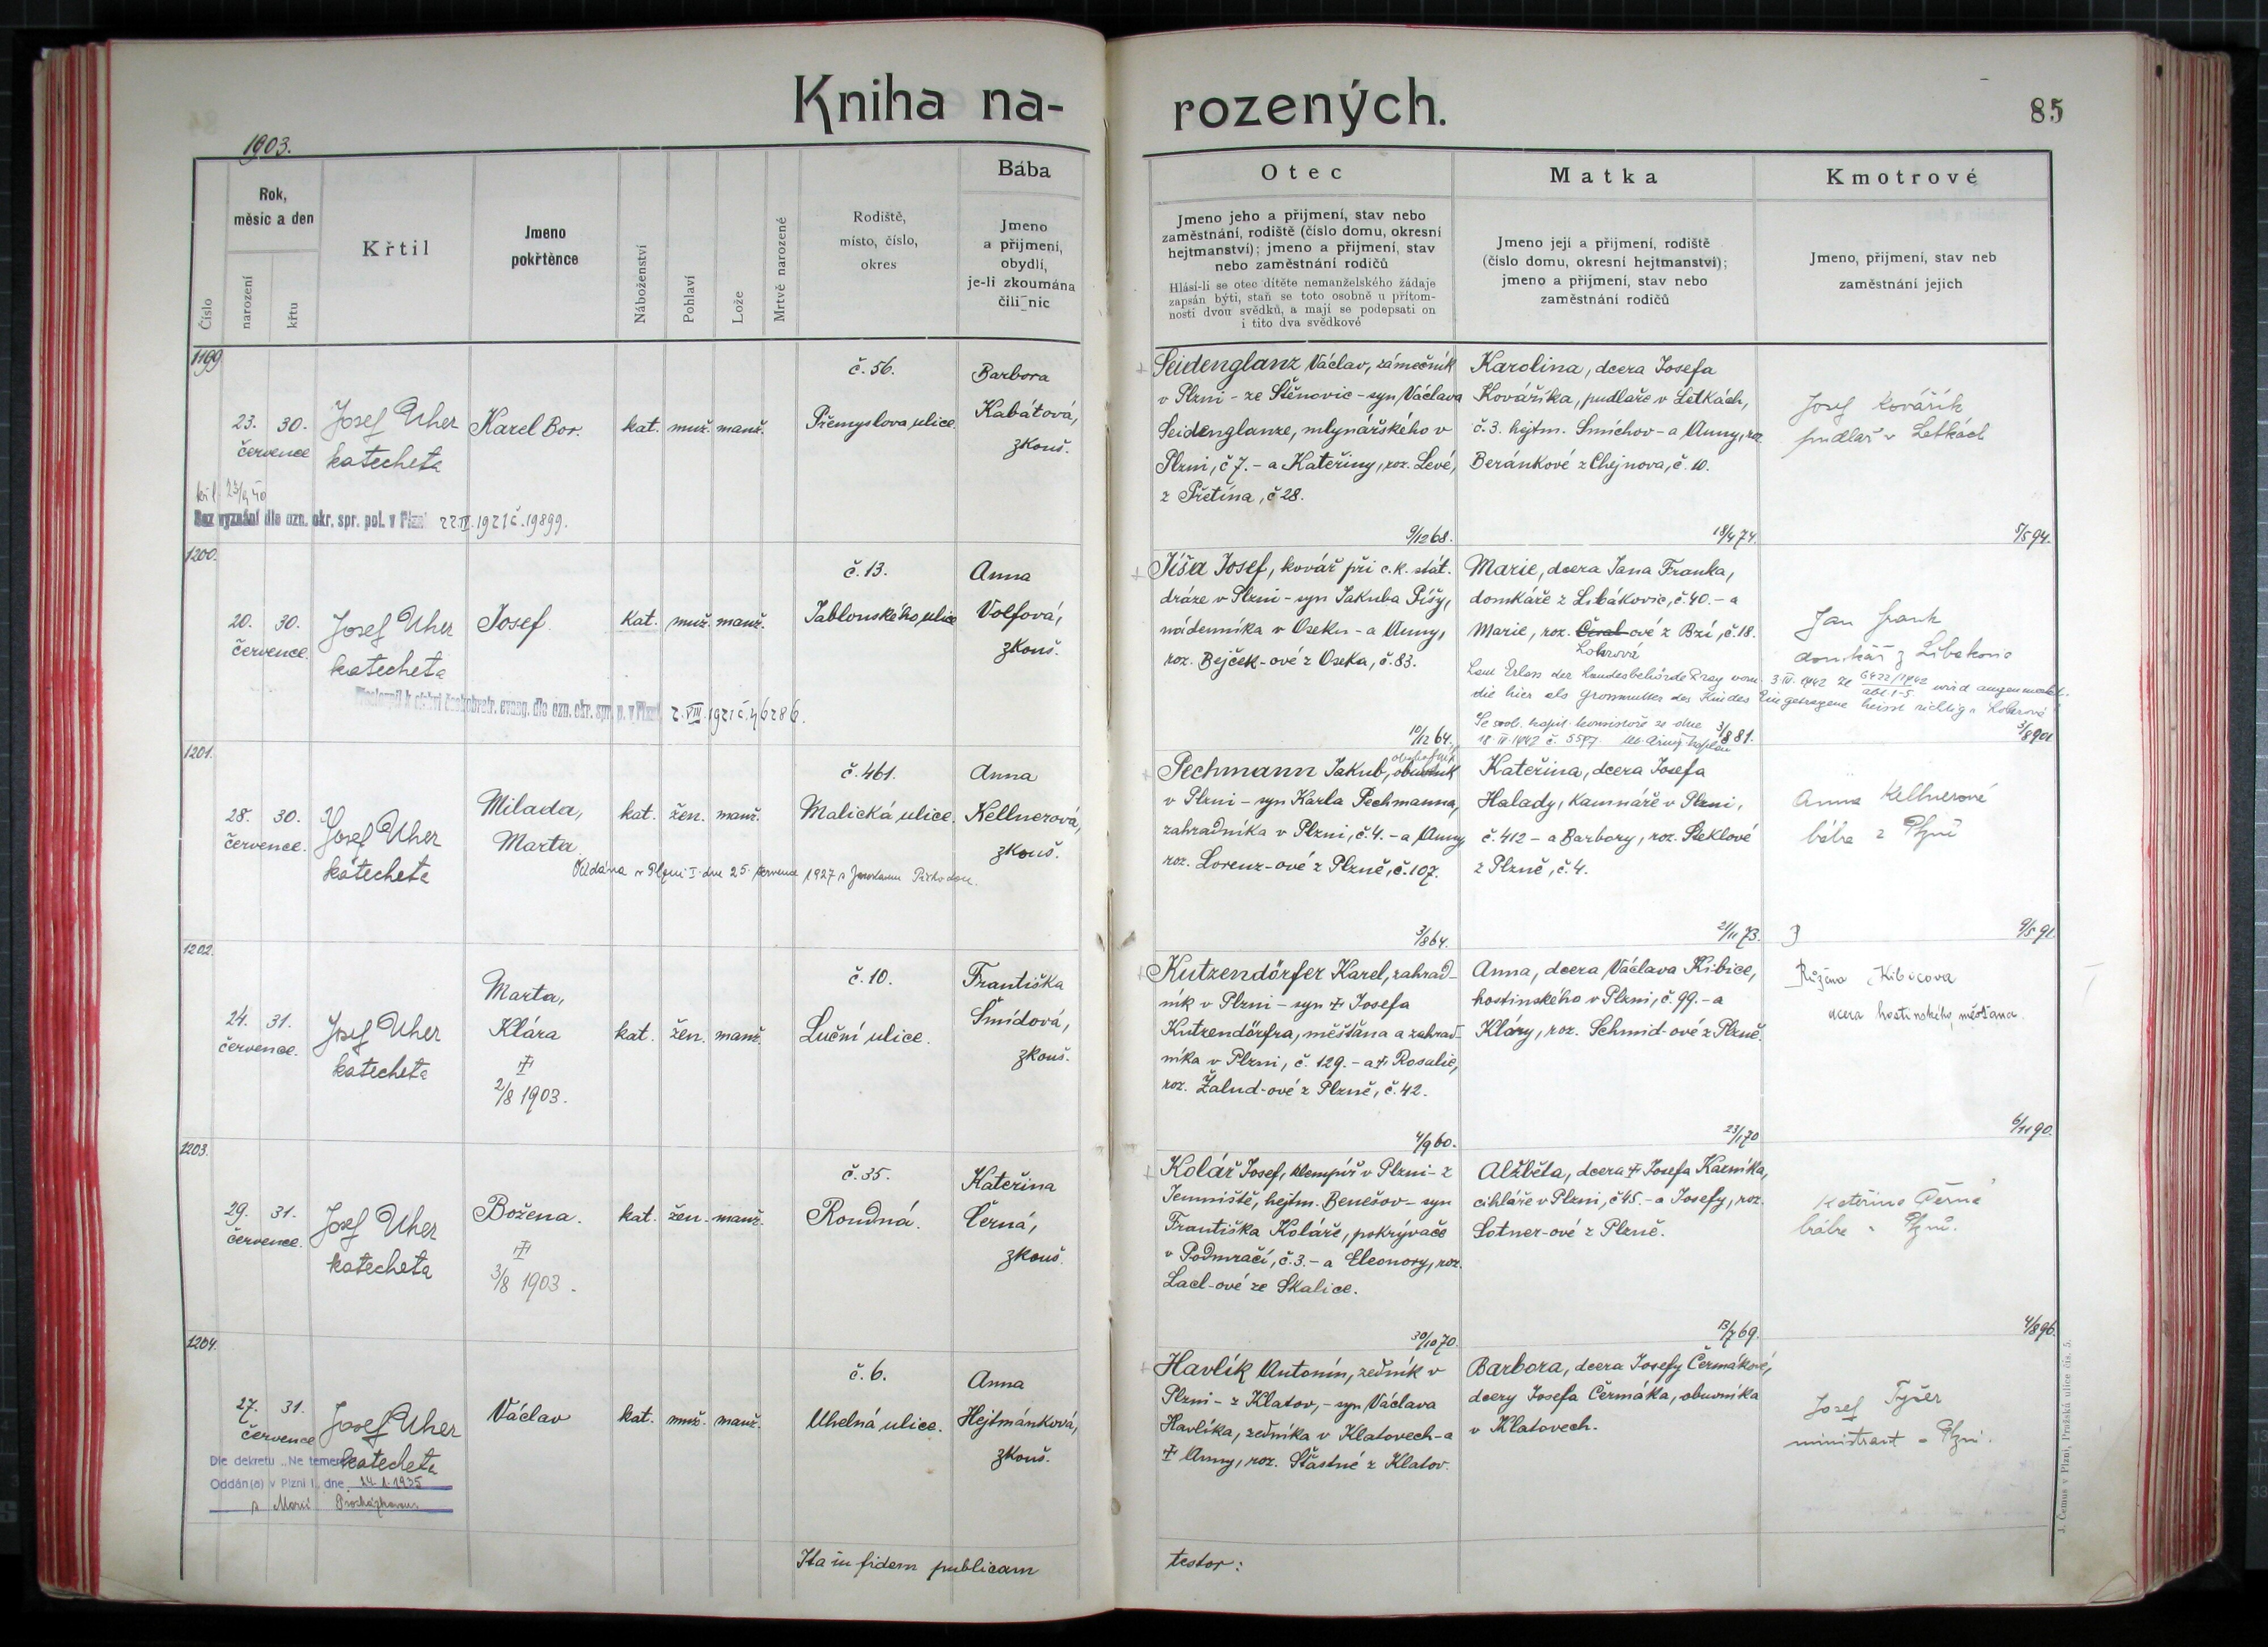 Kniha na-
rozených.
85
1903.
Číslo
Rok,
měsíc a den
narození
křtu
Křtil
Jmeno
pokřtěnce
Náboženství
Pohlaví
Lože
Mrtvě narozené
Rodiště,
místo, číslo,
okres
Bába
Jmeno
a přijmení,
obydlí,
je-li zkoumána
čili nic
Otec
Jmeno jeho a přijmení, stav nebo
zaměstnání, rodiště (číslo domu, okresní
hejtmanství); jmeno a přijmení, stav
nebo zaměstnání rodičů
Hlásí-li se otec dítěte nemanželského žádaje
zapsán býti, staň se toto osobně u přítom-
nosti dvou svědků, a mají se podepsati on
i tito dva svědkové
Matka
Jmeno její a přijmení, rodiště
(číslo domu, okresní hejtmanství);
jmeno a přijmení, stav nebo
zaměstnání rodičů
Kmotrové
Jmeno, přijmení, stav neb
zaměstnání jejich
1199
23. 30.
července
Josef Uher
katecheta
Karel Bor.
kat. muž. manž.
č. 56.
Přemyslova ulice.
Barbora
Kabátová,
zkouš.
Bez vyznání dle ozn. okr. spr. pol. v Plzni 22.IV.1921 č. 19899.
Seidenglanz Václav, zámečník
v Plzni - ze Štěnovic - syn Václava
Seidenglanze, mlynářského v
Plzni, č 7. - a Kateřiny, roz. Levé,
z Přetína, č 28.
9/12 68.
Karolina, dcera Josefa
Kováříka, pudlaře v Letkách,
č. 3. hejtm. Smíchov - a Anny, roz.
Beránkové z Chejnova, č. 10.
18/4 74.
Josef Kovářík
pudlař v Letkách
5/5 94.
1200.
20. 30.
července.
Josef Uher
katecheta
Josef
kat. muž. manž.
č. 13.
Jablonského ulice
Anna
Volfová,
zkouš.
českobratr. evang. dle ozn. okr. spr. p. v Plzni 2.VIII.1921 č. 46286.
Jíša Josef, kovář při c. k. stát.
dráze v Plzni - syn Jakuba Jíšy,
nádenníka v Oseku - a Anny,
roz. Bejček-ové z Oseka, č. 83.
10/12 64.
Marie, dcera Jana Franka,
domkáře z Libákovic, č. 40. - a
Marie, roz. -ové z Bzí, č. 18.
Loberová
Laut Erlass der Landesbehörde Prag vom 3.IV.1942 Zl 6422/1942 wird angemerkt:
die hier als Grossmutter des Kindes Eingetragene heisst richtig „Loberová"
3/8 81.
Jan Frank
domkář z Libákovic
3/8 901
1201.
28. 30.
července.
Josef Uher
katecheta
Milada,
Marta.
kat. žen. manž.
č. 461.
Malická ulice.
Anna
Kellnerová,
zkouš.
Oddána v Plzni I. dne 25. července 1927 s Jaroslavem
Pechmann Jakub, obuvník
v Plzni - syn Karla Pechmanna,
zahradníka v Plzni, č. 4. - a Anny
roz. Lorenz-ové z Plzně, č. 107.
3/8 64.
Kateřina, dcera Josefa
Halady, kamnáře v Plzni,
č. 412 - a Barbory, roz. Steklové
z Plzně, č. 4.
21/11 73.
Anna Kellnerová
bába z Plzně
9/5 91.
1202.
24. 31.
července.
Josef Uher
katecheta
Marta,
Klára
2/8 1903.
kat. žen. manž.
č. 10.
Luční ulice.
Františka
Šmídová,
zkouš.
Kutzendörfer Karel, zahrad-
ník v Plzni - syn ✝ Josefa
Kutzendörfra, měšťana a zahrad-
níka v Plzni, č. 129. - a ✝ Rosalie,
roz. Žalud-ové z Plzně, č. 42.
4/9 60.
Anna, dcera Václava Kibice,
hostinského v Plzni, č. 99. - a
Kláry, roz. Schmid-ové z Plzně.
23/1 70
Růžena Kibicova
dcera hostinského, měšťana.
6/11 90.
1203.
29. 31.
července.
Josef Uher
katecheta
Božena.
3/8 1903.
kat. žen. manž.
č. 35.
Roudná.
Kateřina
Černá,
zkouš.
Kolář Josef, klempíř v Plzni - z
Jemniště, hejtm. Benešov - syn
Františka Koláře, pokrývače
v Podmračí, č. 3. - a Eleonory, roz.
Lacl-ové ze Skalice.
30/10 70.
Alžběta, dcera ✝ Josefa Karníka,
cihláře v Plzni, č 45. - a Josefy, roz.
Lotner-ové z Plzně.
13/7 69.
Kateřina Černá
bába v Plzni.
4/8 96.
1204.
27. 31.
července
Josef Uher
katecheta
Václav
kat. muž. manž.
č. 6.
Uhelná ulice.
Anna
Hejtmánková,
zkouš.
Dle dekretu „Ne temere"
Oddán(a) v Plzni I., dne 14.1.1935
s Marií Procházkovou
Havlík Antonín, zedník v
Plzni - z Klatov, - syn Václava
Havlíka, zedníka v Klatovech - a
✝ Anny, roz. Šťastné z Klatov.
Barbora, dcera Josefy Čermákové,
dcery Josefa Čermáka, obuvníka
v Klatovech.
Josef Tyšer
ministrant v Plzni.
Ita in fidem publicam
testor:
J. Čemus v Plzni, Pražská ulice čís. 5.